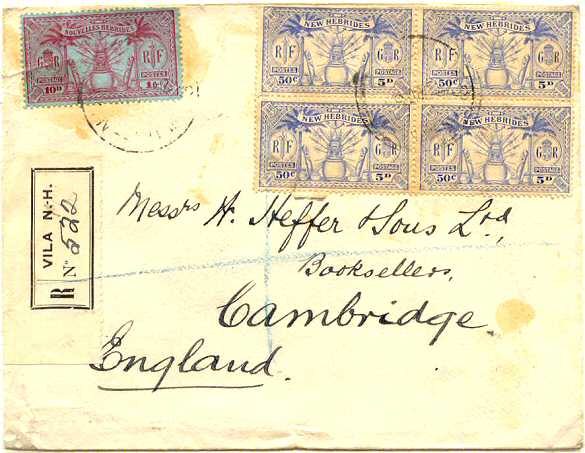 NOUVELLES HÉBRIDES
R F
G R
POSTAGE POSTES
10D 1fr
NEW HEBRIDES
R F
G R
POSTES POSTAGE
50c 5D
NEW HEBRIDES
R F
G R
POSTES POSTAGE
50c 5D
NEW HEBRIDES
R F
G R
POSTES POSTAGE
50c 5D
NEW HEBRIDES
R F
G R
POSTES POSTAGE
50c 5D
VILA N.H.
R No 522
Messrs W. Heffer & Sons Ltd,
Booksellers,
Cambridge.
England.